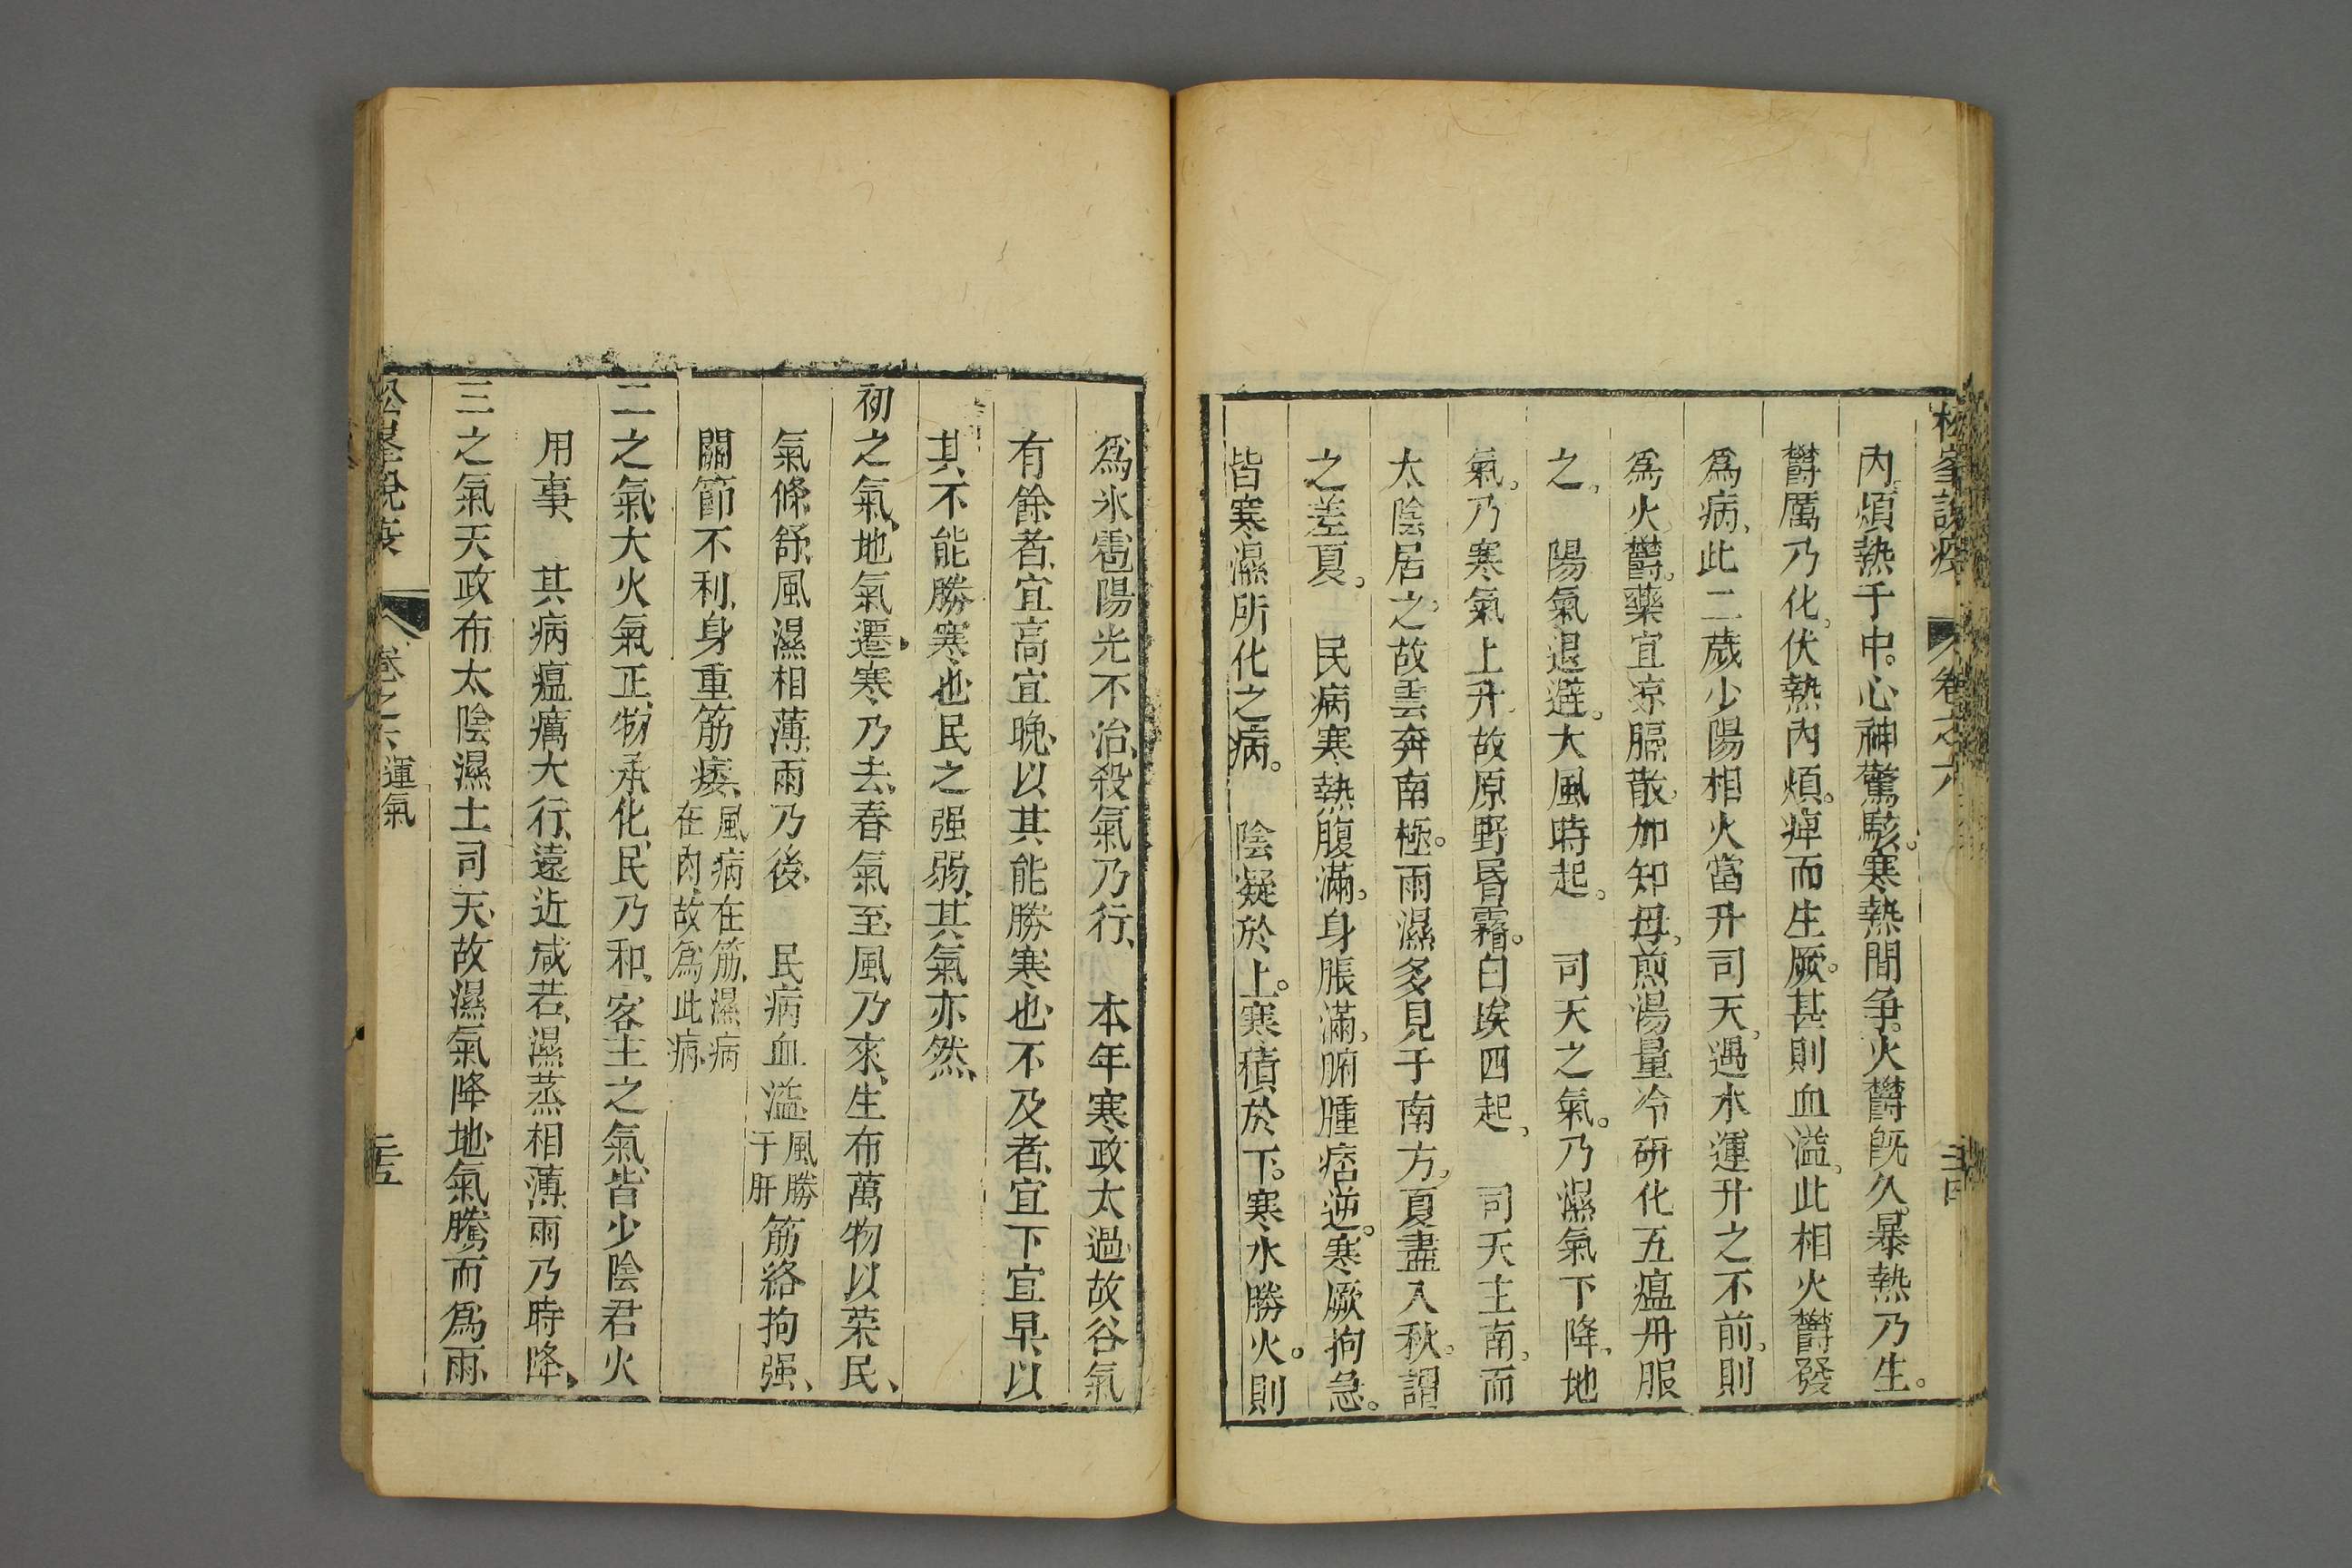 松峯説疫 卷之六
内。煩熱于中。心神驚駭。寒熱間争。火欝旣久。暴熱乃生。
欝厲乃化。伏熱内煩。痺而生厥。甚則血溢。此相火欝發
爲病。此二歲少陽相火當升司天。遇水運升之不前。則
爲火欝。藥宜凉膈散。加知母。煎湯量冷研化五瘟丹服
之。　陽氣退避。大風時起。　司天之氣。乃濕氣下降。地
氣。乃寒氣上升。故原野昬霧。白埃四起。　司天主南。而
太陰居之。故雲奔南極。雨濕多見于南方。夏盡入秋。謂
之差夏。　民病寒熱腹滿。身脹滿。胕腫痞逆。寒厥拘急。
皆寒濕所化之病。　陰凝於上。寒積於下。寒水勝火。則
爲氷雹陽光不治、殺氣乃行、　本年寒政太過故谷氣
有餘者、宜高宜晚、以其能勝寒也、不及者、宜下宜早、以
其不能勝寒也、民之强弱、其氣亦然、
初之氣、地氣遷、寒乃去、春氣至、風乃來、生布萬物以荣民、
氣條舒、風濕相薄、雨乃後、　民病血溢、風勝于肝筋絡拘强、
關節不利、身重筋痿、風病在筋、濕病在肉、故爲此病、
二之氣、大火氣正、物承化、民乃和、客主之氣、皆少陰君火
用事、　其病瘟癘大行、遠近咸若、濕蒸相薄、雨乃時降、
三之氣天政布太陰濕土司天、故濕氣降地、氣騰而爲雨、
松峯説疫 卷之六 運氣 二十五